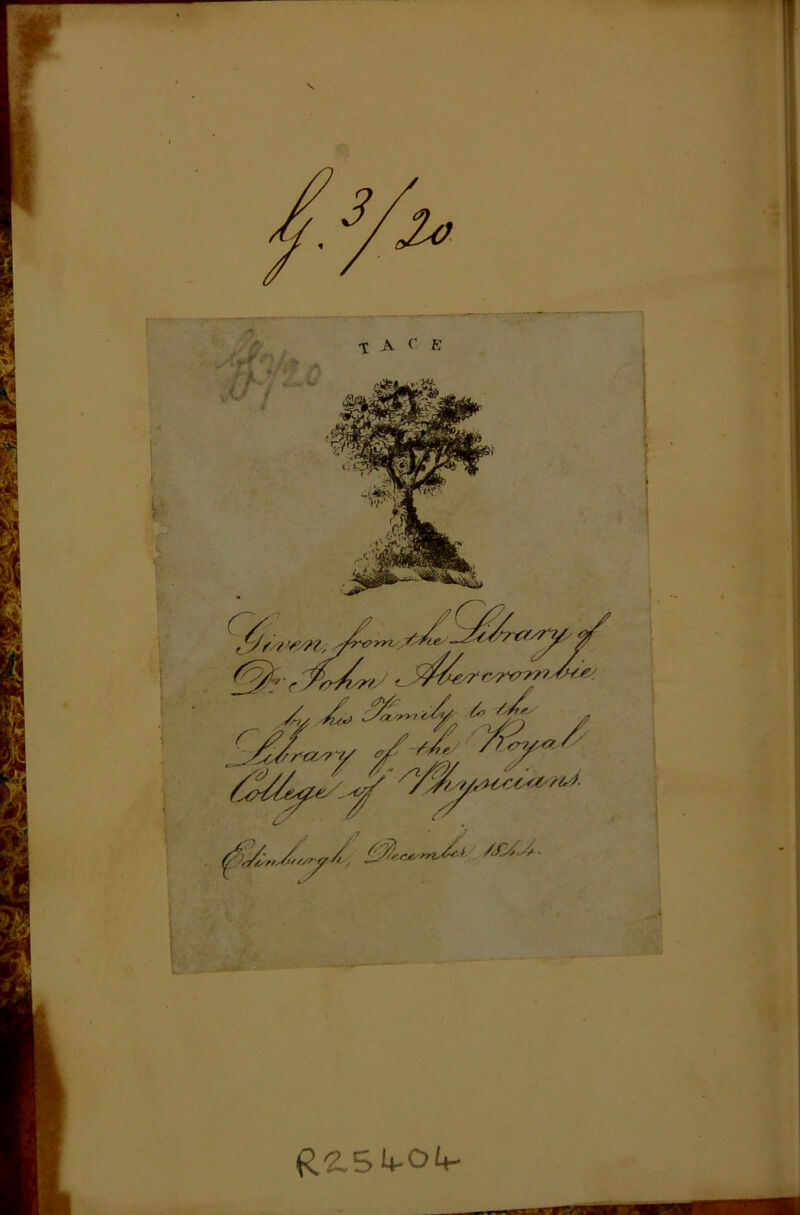 G. 3/20
G3/20
TACE
Given, from the Library of
Dr. John Abercrombie
by his Family to the
Library of the Royal
College of Physicians.
Edinburgh, December 1844.
R25404